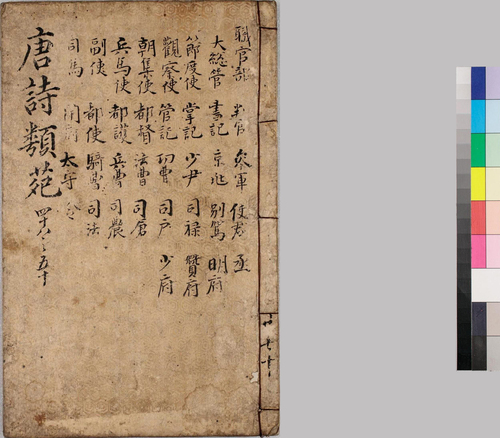 職官部 判官 參軍 使君 丞
大總管 書記 京兆 別駕 明府
節度使 掌記 少尹 司祿 贊府
觀察使 管記 功曹 司戶 少府
朝集使 都督 法曹 司倉
兵馬使 都護 兵曹 司農
副使 都使 騎曹 司法
司馬 太守 令
唐詩類苑 四十八之五十